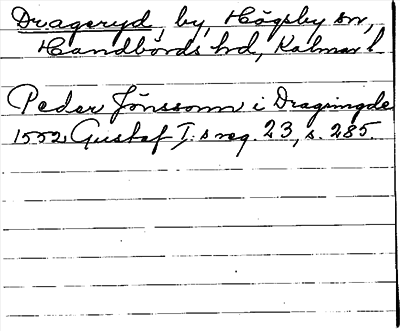 Drageryd, by, Högsby sn,
Handbörds hd, Kalmar l.
Peder Jönssonn i Dragringde
1552 Gustaf I:s reg. 23, s. 285.